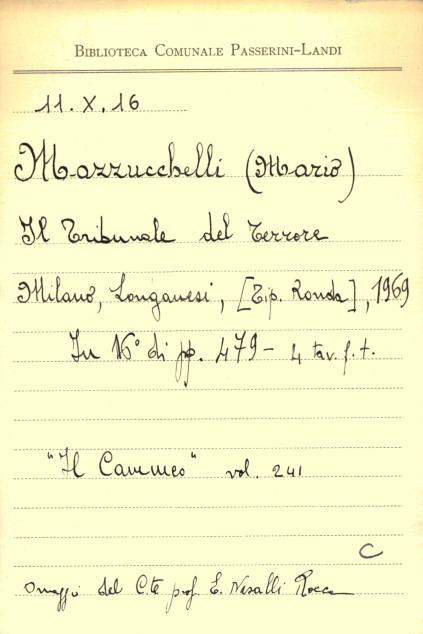 BIBLIOTECA COMUNALE PASSERINI-LANDI
11. X. 16
Mazzucchelli (Mario)
Il Tribunale del Terrore
Milano, Longanesi, [Tip. Ronda], 1969
In 16° di pp. 479 - 4 tav. f. t.
"Il Cammeo" vol. 241
C
Omaggio del C.te prof. E. Nasalli Rocca